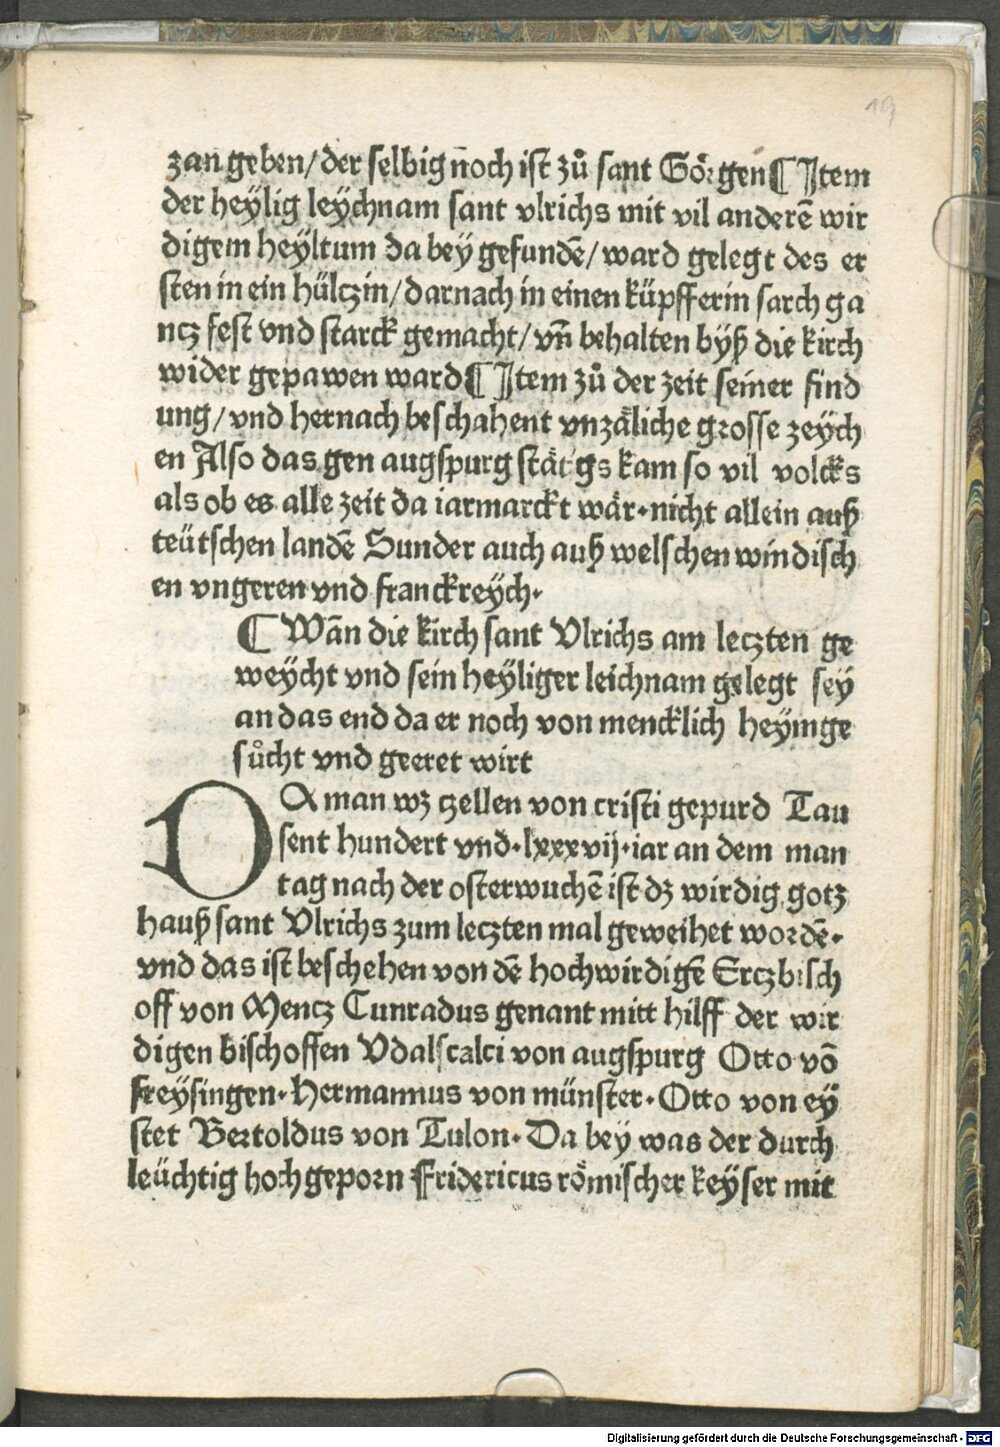 19
zan geben/ der selbig n̄och ist zů sant Görgen ¶ Item
der heÿlig leÿchnam sant vlrichs mit vil anderē wir
digem heÿltum da beÿ gefundē/ ward gelegt des er
sten in ein hülczin/ darnach in einen küpfferin sarch ga
ncz fest vnd starck gemacht/ vn̄ behalten bÿß die kirch
wider gepawen ward ¶ Item zů der zeit seiner find
ung/ vnd hernach beschahent vnzäliche grosse zeÿch
en Also das gen augspurg stätigs kam so vil volcks
als ob es alle zeit da iarmarckt wär· nicht allein auß
teütschen landē Sunder auch auß welschen windisch
en vngeren vnd franckreÿch·
¶ Wān die kirch sant Vlrichs am leczten ge
weÿcht vnd sein heÿliger leichnam gelegt seÿ
an das end da er noch von mencklich heÿmge
sůcht vnd geeret wirt
DA man wz czellen von cristi gepurd Tau
sent hundert vnd·lxxxvij·iar an dem man
tag nach der osterwuchē ist dz wirdig gotz
hauß sant Vlrichs zum leczten mal geweihet wordē·
vnd das ist beschehen von dē hochwirdigē Erczbisch
off von Mencz Cunradus genant mitt hilff der wir
digen bischoffen Vdalscalci von augspurg Otto vō
freÿsingen· Hermannus von münster· Otto von eÿ
stet Bertoldus von Tulon· Da beÿ was der durch
leüchtig hochgeporn Fridericus römischer keÿser mit
Digitalisierung gefördert durch die Deutsche Forschungsgemeinschaft - DFG